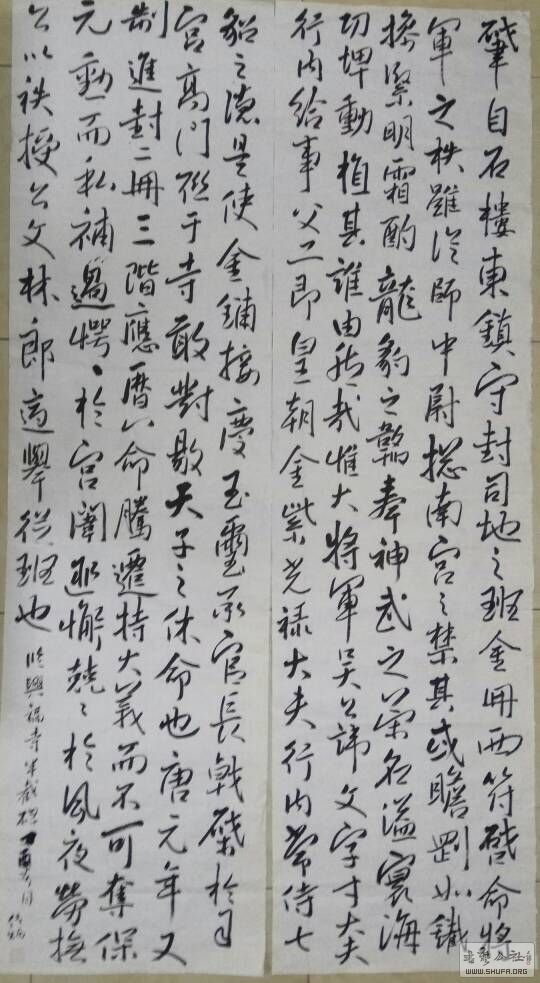 肇自石樓東鎮守封司地之班金冊西符啓命將
軍之秩雖從師中尉揔南宮之禁其或瞻劉如鐵
操潔明霜酌龍豹之韜奉神武之榮名溢寰海
功埤動植其誰由然哉惟大將軍吴公諱文字才
行内給事父二即皇朝金紫光禄大夫行内常侍七
貂之德是使金鋪接慶玉璽承官長戟磔於司
宮高門於于寺敢對敭天子之休命也唐元年又
制進封二冊三階應曆八命騰遷持大義而不可奪保
元勳而私補過愕〻於宮闈匪懈兢〻於夙夜勞撫
公以秩授公文林郎適舉從班也
臨興福寺半截碑 丁酉 月
書艺公社
WWW.SHUFA.ORG